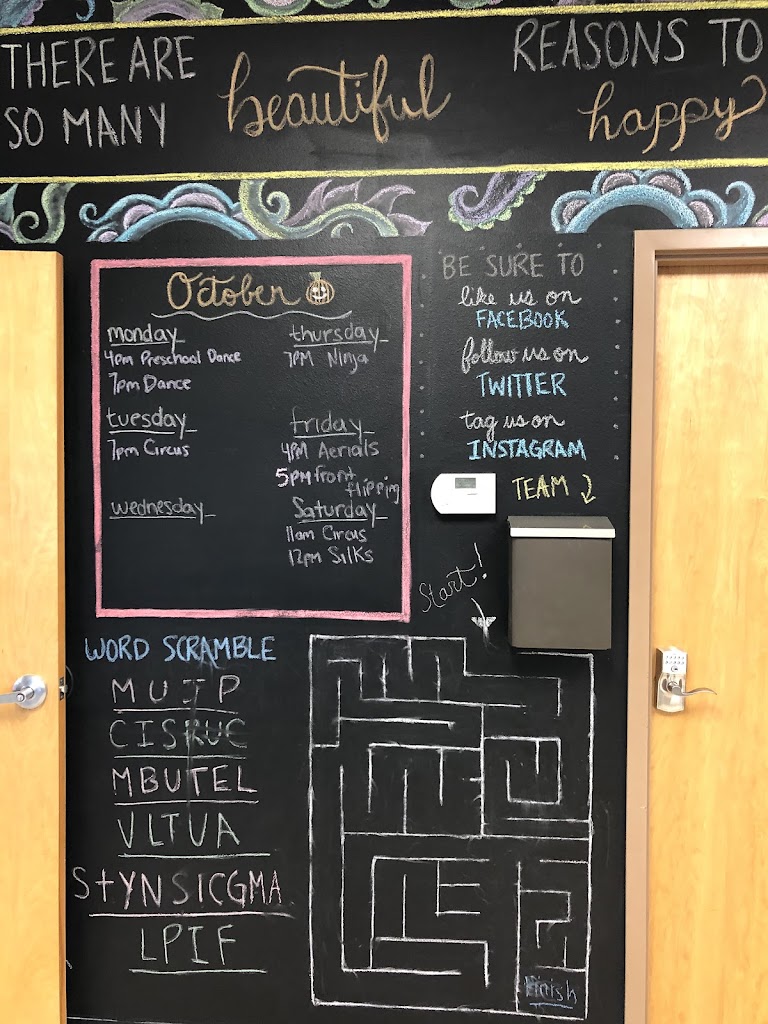 THERE ARE
SO MANY
beautiful
REASONS TO
happy
October
monday
4pm Preschool Dance
7pm Dance
tuesday
7pm Circus
wednesday
thursday
7PM Ninja
friday
4PM Aerials
5pm front
flipping
Saturday
11am Circus
12pm Silks
BE SURE TO
like us on
FACEBOOK
follow us on
TWITTER
tag us on
INSTAGRAM
TEAM
Start!
WORD SCRAMBLE
MUJP
CISRUC
MBUTEL
VLTUA
StYNSICGMA
LPIF
Finish